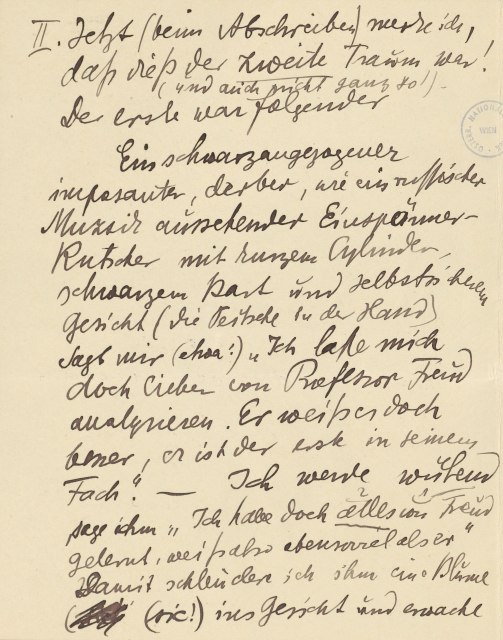 II. Jetzt (beim Abschreiben) merke ich,
daß dieß der zweite Traum war!
(und auch nicht ganz so!).
Der erste war folgender
Ein schwarzangezogener
imposanter, derber, wie ein russischer
Muzsik aussehender Einspänner-
Kutscher mit kurzem Cylinder,
schwarzem Bart und selbstsicherem
Gesicht (die Peitsche in der Hand)
sagt mir (etwa!) „Ich laße mich
doch lieber von Professor Freud
analysieren. Er weiß es doch
besser, er ist der erste in seinem
Fach." — Ich werde wütend
sage ihm „Ich habe doch alles von Freud
gelernt, weiß also ebensoviel als er"
Damit schleudere ich ihm eine Blume
(sic!) ins Gesicht und erwache
WIEN